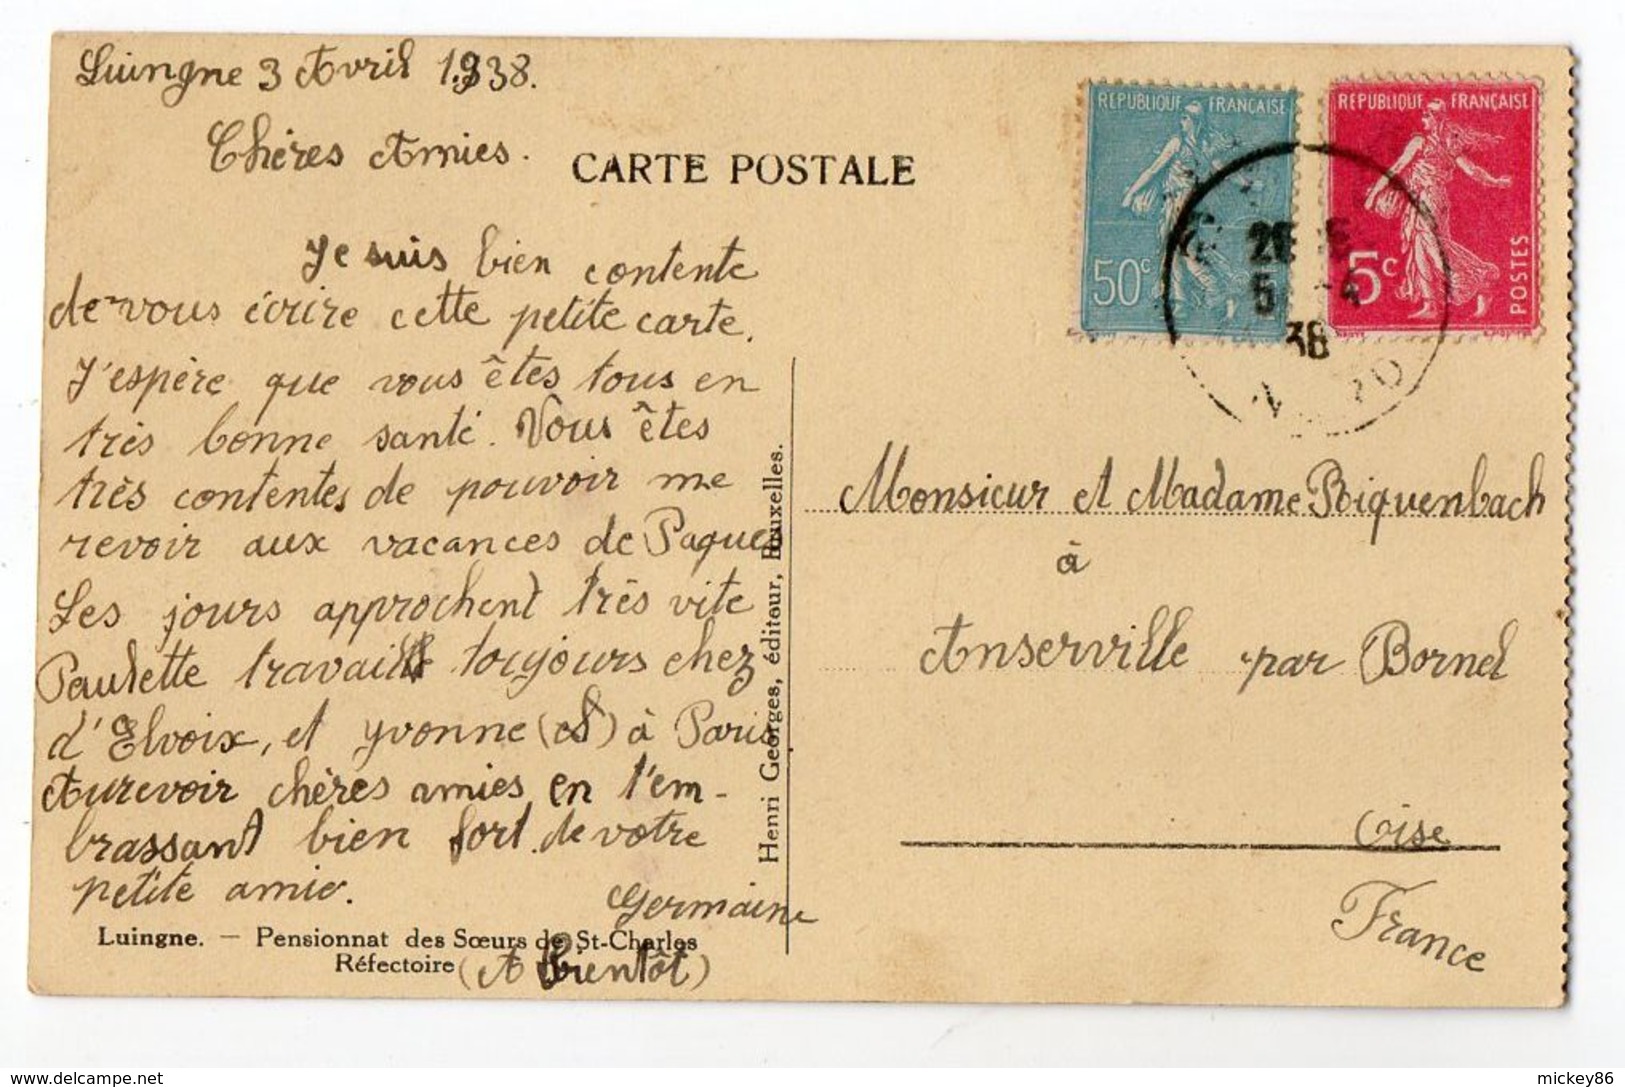 Luingne 3 Avril 1938.
Chères Amies.
CARTE POSTALE
Je suis bien contente
de vous écrire cette petite carte.
J'espère que vous êtes tous en
très bonne santé. Vous êtes
très contentes de pouvoir me
revoir aux vacances de Paques
Les jours approchent très vite
Paulette travaille toujours chez
d'Elvoix, et Yvonne ( ) à Paris.
Aurevoir chères amies en l'em-
brassant bien fort de votre
petite amie.
Germaine
(A Bientôt)
Luingne. — Pensionnat des Sœurs de St-Charles
Réfectoire
Henri Georges, éditeur, Bruxelles.
REPUBLIQUE FRANÇAISE
50c
REPUBLIQUE FRANÇAISE
5c
POSTES
5 -4
38
Monsieur et Madame Riquenbach
à
Anserville par Bornel
Oise
France
delcampe.net
mickey86